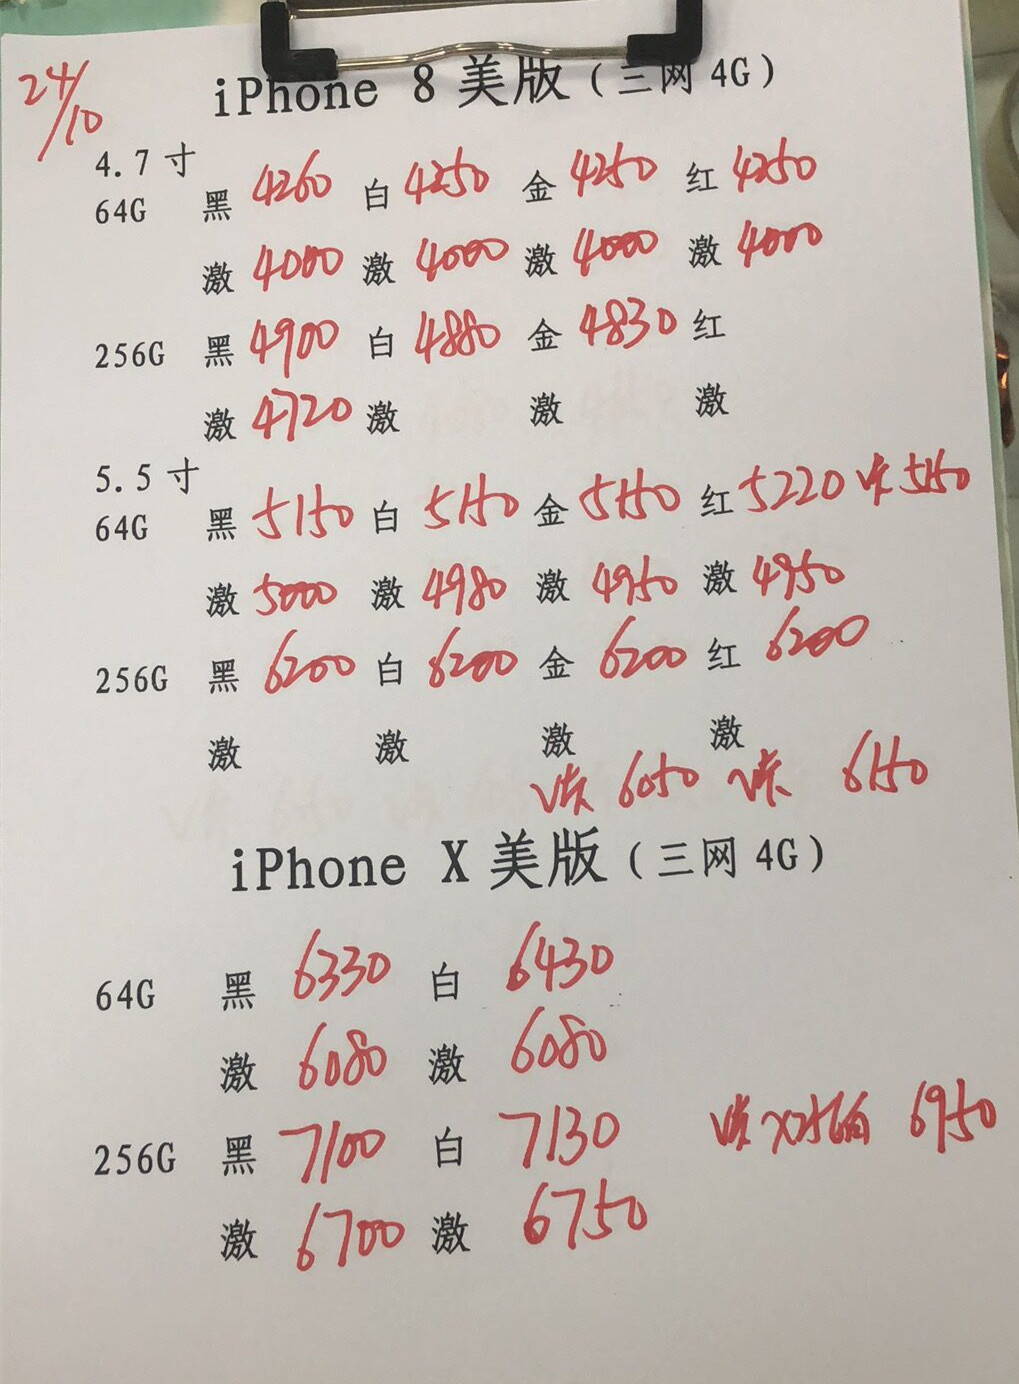 24/10
iPhone 8 美版（三网 4G）
4.7 寸
64G 黑 4260 白 4250 金 4250 红 4250
激 4000 激 4000 激 4000 激 4000
256G 黑 4900 白 4880 金 4830 红
激 4720 激 激 激
5.5 寸
64G 黑 5150 白 5150 金 5150 红 5220 卡 5150
激 5000 激 4980 激 4950 激 4950
256G 黑 6200 白 6200 金 6200 红 6200
激 激 激 激
6050 6150
iPhone X 美版（三网 4G）
64G 黑 6330 白 6430
激 6080 激 6080
256G 黑 7100 白 7130 X256 6950
激 6700 激 6750